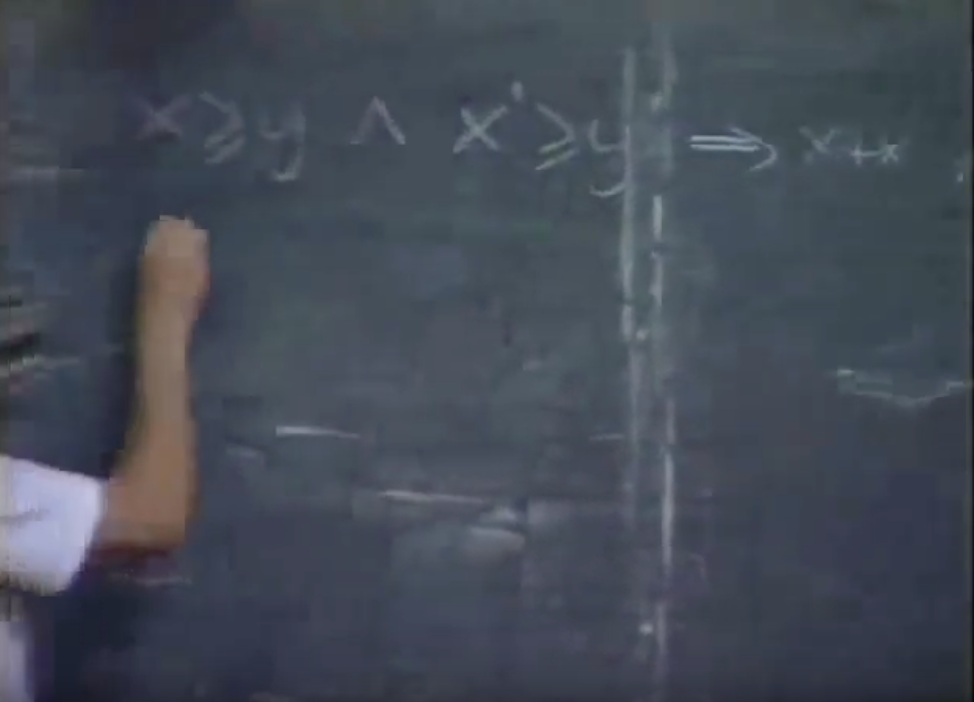 x ⩾ y ∧ x' ⩾ y ⟹ x + x